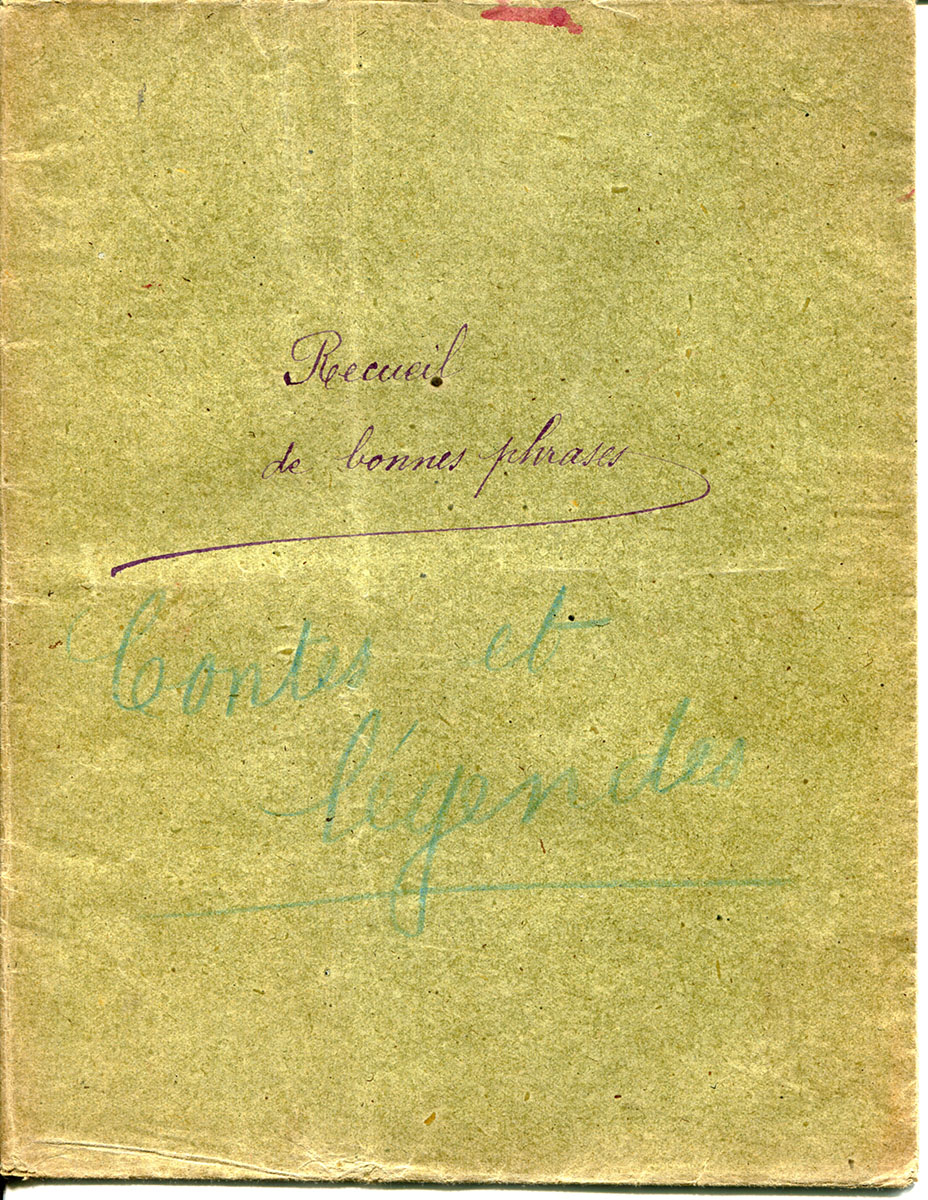 Recueil
de bonnes phrases
Contes et
légendes